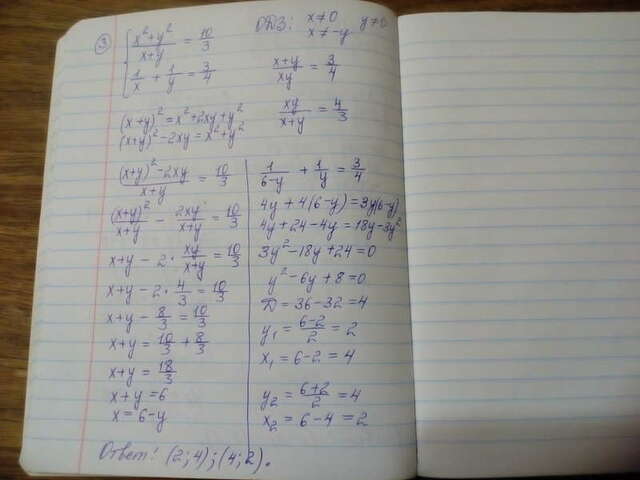 ③ { (x²+y²)/(x+y) = 10/3   ОДЗ: x≠0   y≠0
x≠-y
1/x + 1/y = 3/4   (x+y)/(xy) = 3/4
(x+y)² = x²+2xy+y²   xy/(x+y) = 4/3
(x+y)²-2xy = x²+y²
((x+y)²-2xy)/(x+y) = 10/3
(x+y)²/(x+y) - 2xy/(x+y) = 10/3
x+y - 2 · xy/(x+y) = 10/3
x+y - 2 · 4/3 = 10/3
x+y - 8/3 = 10/3
x+y = 10/3 + 8/3
x+y = 18/3
x+y = 6
x = 6-y
1/(6-y) + 1/y = 3/4
4y + 4(6-y) = 3y(6-y)
4y+24-4y = 18y-3y²
3y²-18y+24=0
y²-6y+8=0
D = 36-32 = 4
y₁ = (6-2)/2 = 2
x₁ = 6-2 = 4
y₂ = (6+2)/2 = 4
x₂ = 6-4 = 2
Ответ: (2; 4); (4; 2).